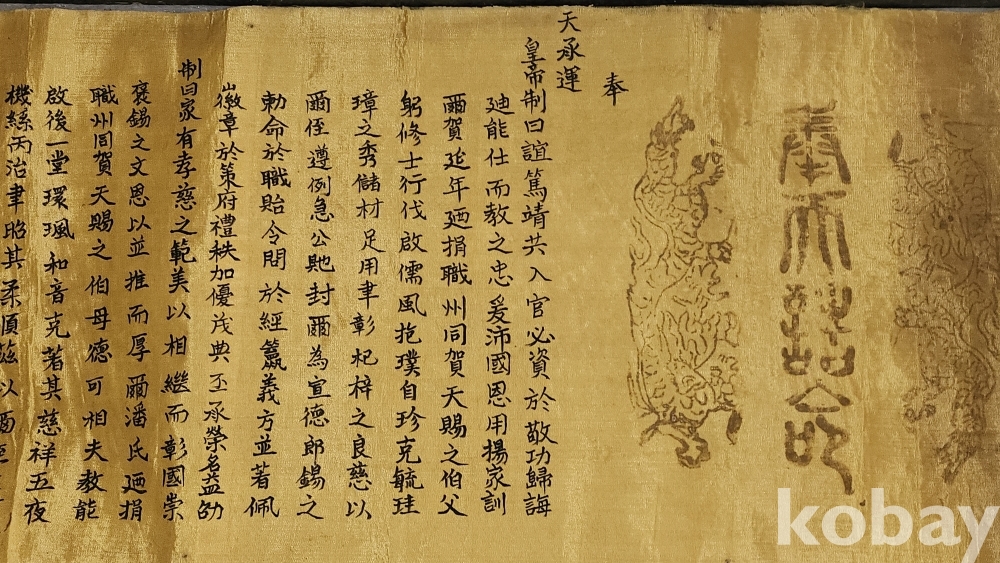 奉天誥命
奉
天承運
皇帝制曰誼篤靖共入官必資於敬功歸誨
廸能仕而教之忠爰沛國恩用揚家訓
爾賀延年廼捐職州同賀天賜之伯父
躬修士行代啟儒風抱璞自珍克毓珪
璋之秀儲材足用聿彰杞梓之良慈以
爾侄遵例急公貤封爾為宣德郎錫之
勅命於戲貽令問於經籯義方並著佩
徽章於策府禮秩加優茂典丕承榮名益劭
制曰家有孝慈之範美以相繼而彰國崇
褒錫之文恩以並推而厚爾潘氏廼捐
職州同賀天賜之伯母德可相夫教能
啟後一堂環珮和音克著其慈祥五夜
機絲丙治聿昭其柔順茲以爾
kobay